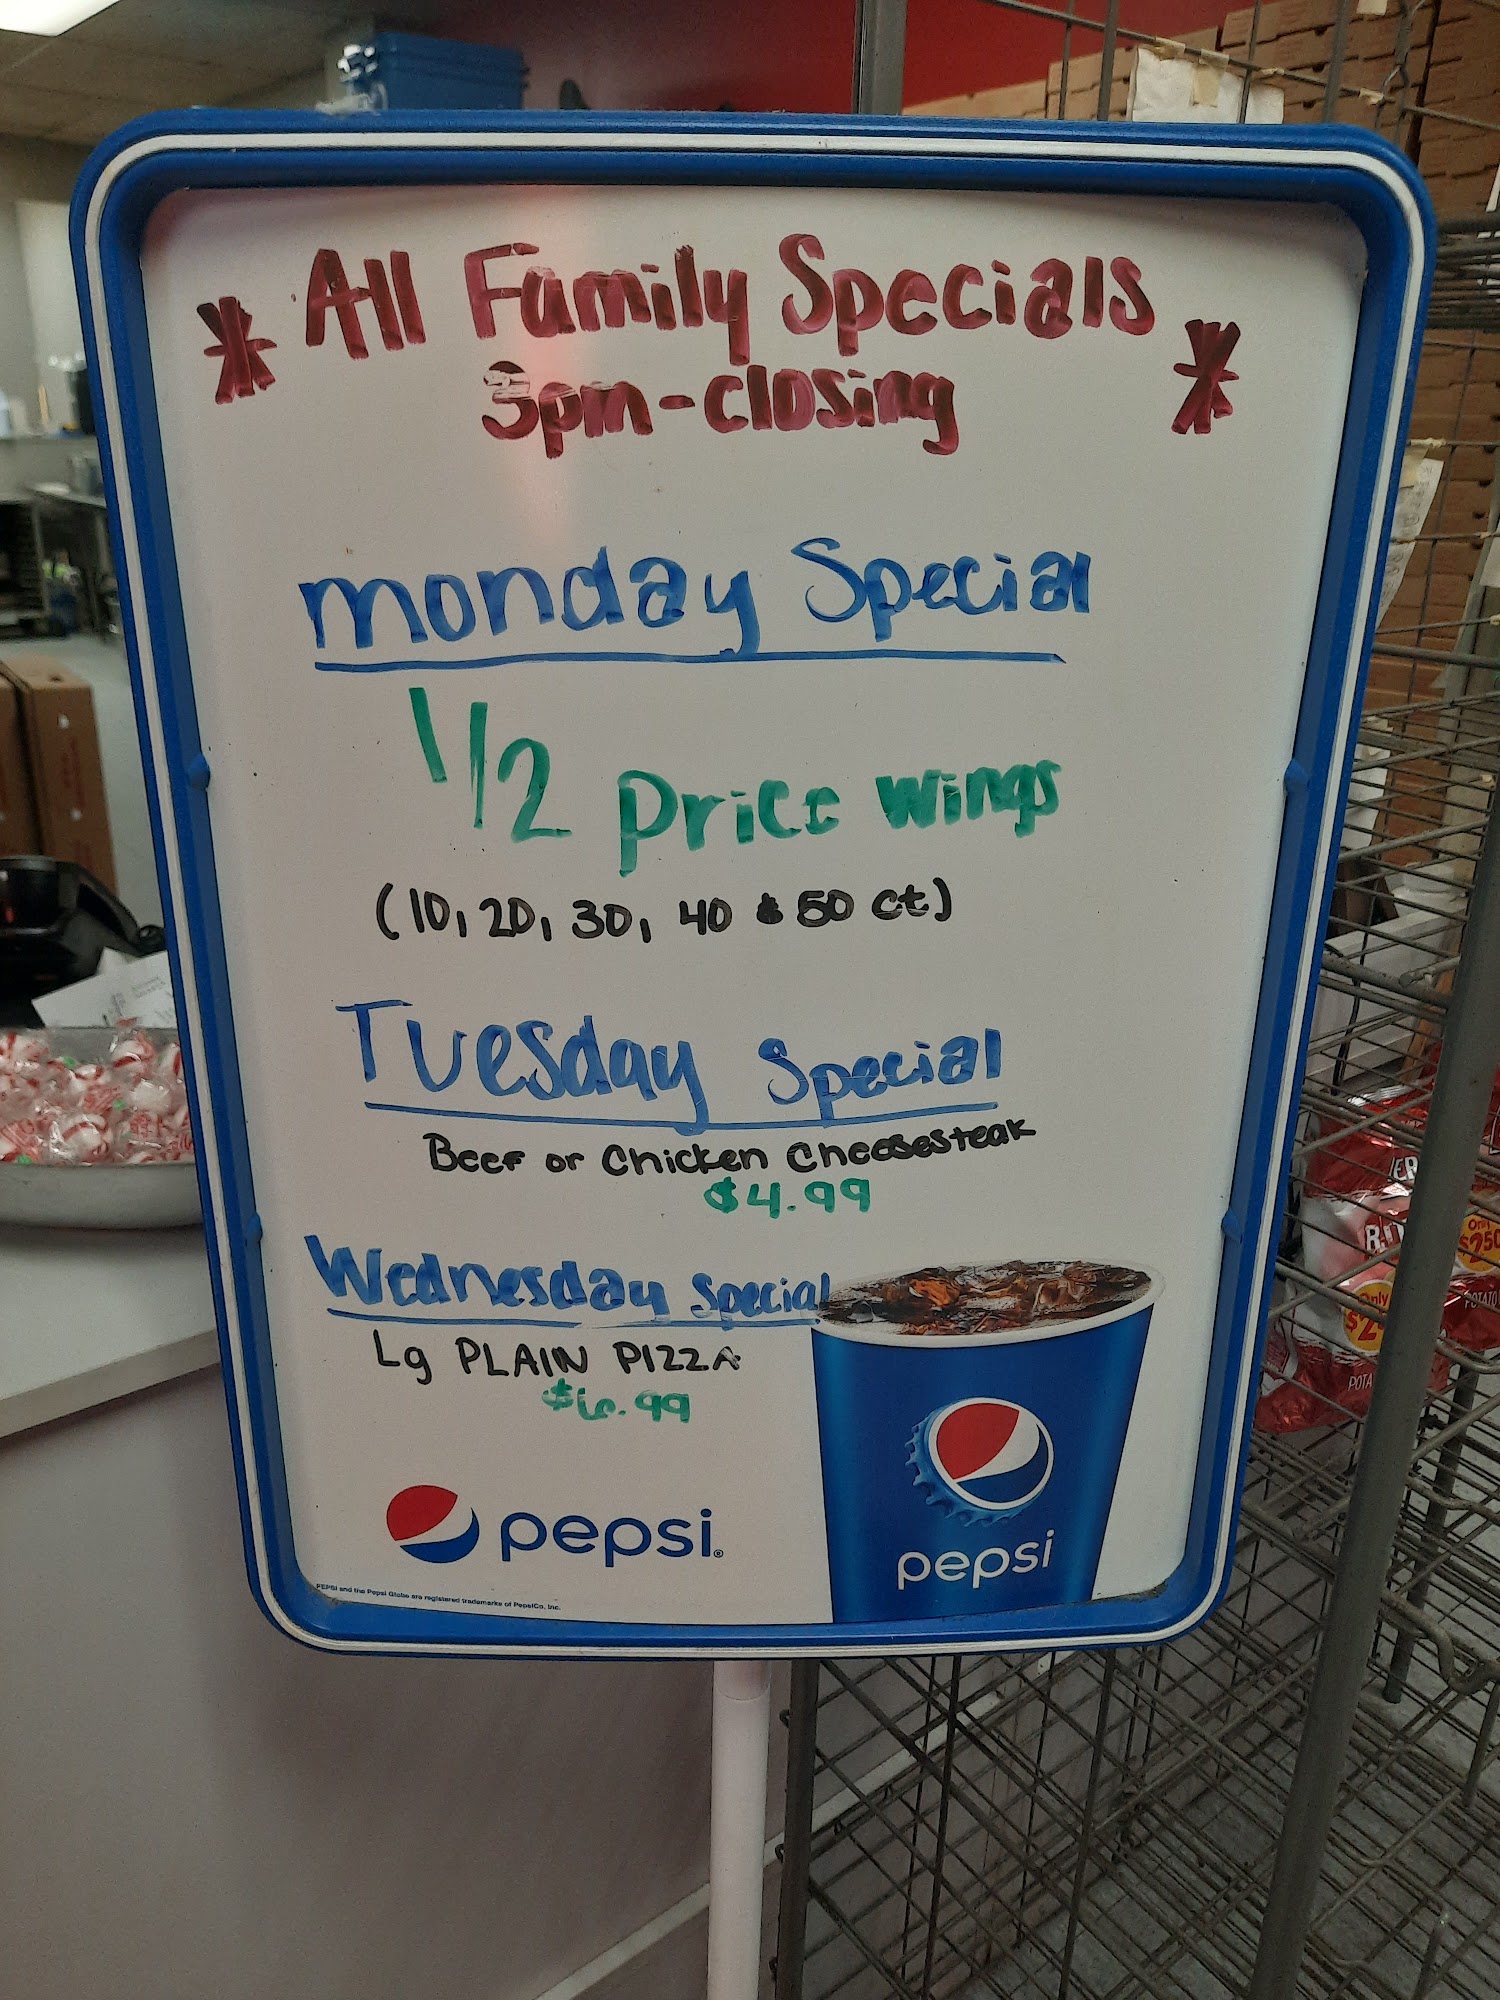 * All Family Specials *
3pm-closing
monday Special
1/2 price wings
(10, 20, 30, 40 & 50 ct)
Tuesday Special
Beef or Chicken Cheesesteak
$4.99
Wednesday Special
Lg PLAIN PIZZA
$6.99
pepsi
PEPSI and the Pepsi Globe are registered trademarks of PepsiCo, Inc.
pepsi
Only
$250
Only
$2
POTATO
POTA